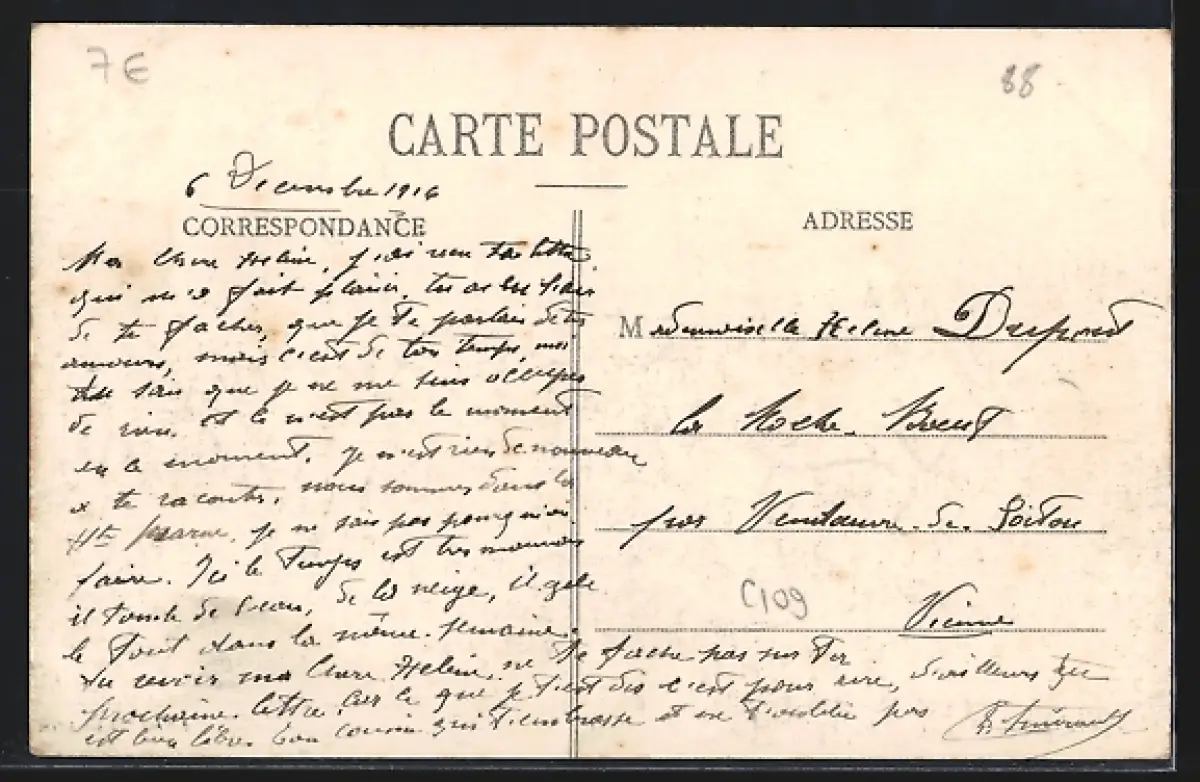 7€
88
CARTE POSTALE
6 Decembre 1916
CORRESPONDANCE
Ma chere Helène, j'ai recu ta lettre
qui m'a fait plaisir, tu
de te facher, que je te parlais de tes
amours, mais c'est de ton temps, moi
tu sais que je ne me suis occuper
de rien. et ce n'est pas le moment
en ce moment. je n'est rien de nouveau
a te raconter, nous sommes dans la
Hte Marne, je ne sais pas pourquoi
faire. Ici le temps est tres mauvais
il tombe de l'eau, de la neige, il gele
le tout dans la même semaine.
Au revoir ma chere Helene, ne te fache pas sur ta
prochaine lettre. Car ce que je t'est dis c'est pour rire, d'ailleurs tu
est bien libre. Ton cousin qui t'embrasse et ne t'oublie pas
ADRESSE
Mademoiselle Helene Dupont
la Roche
par de
C109
Vienne